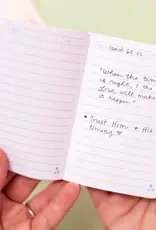 Isaiah 60:22
"When the time
is right, I the
Lord will make
it happen."
• Trust Him + His
timing ♡